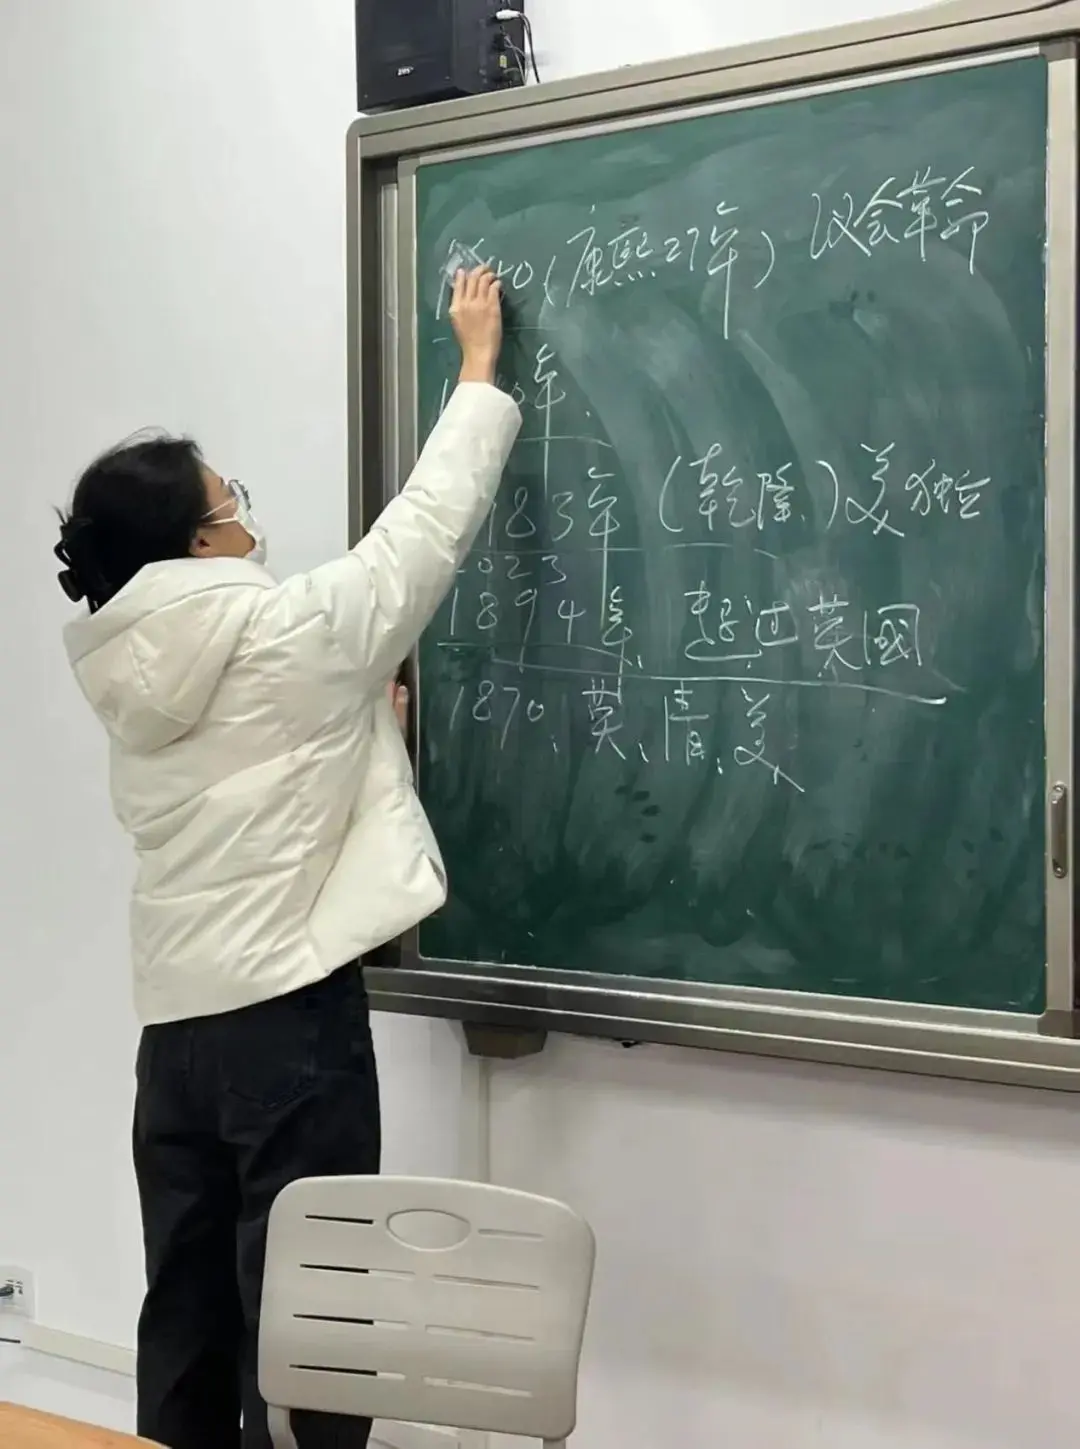 40(康熙27年) 议会革命
年.
1783年 (乾隆.)美独立
2023
1894年、超过英國
1870.英、清、美、